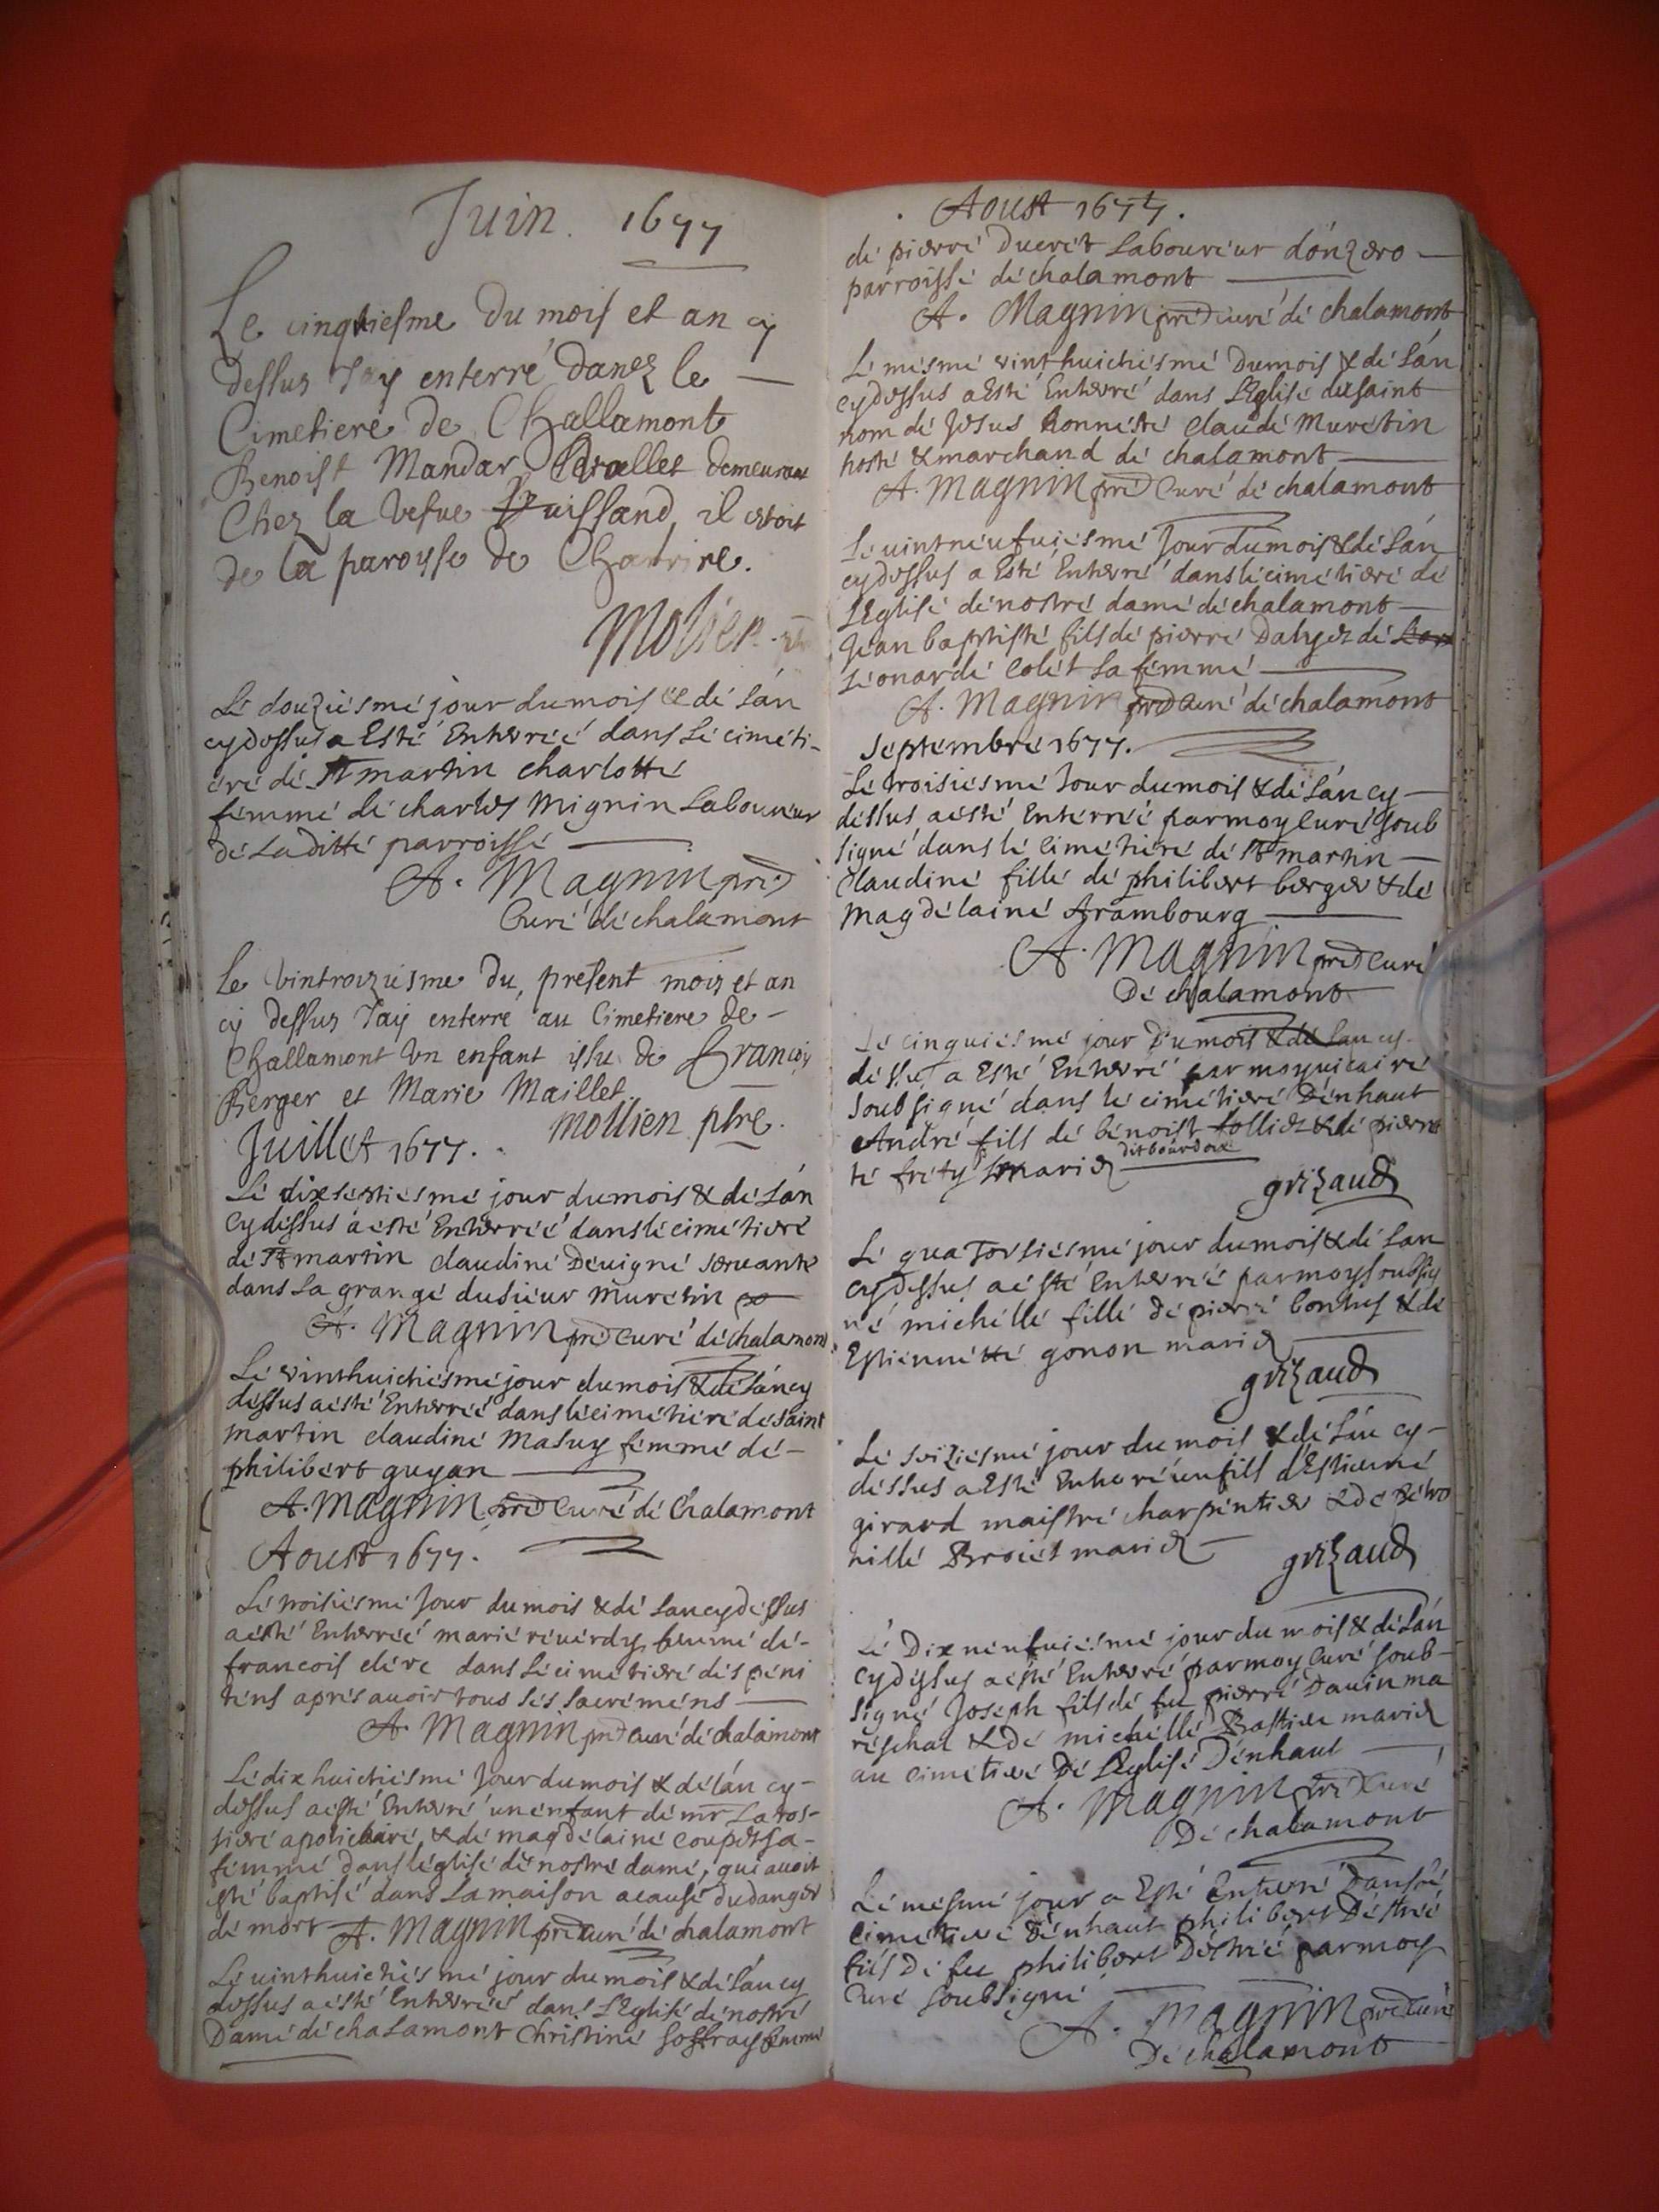 Juin. 1677
Le cinqhiesme du mois et an cy
dessus Jay enterré danez le
Cimetiere de Challamont
Benoist Mandar, vallet demeurant
Chez la vefue Puissand, il estoit
de la paroysse de
Mollien
Lé douziésmé jour du mois & dé Lán
cydessus a Esté Enterréé dans Lé ciméti-
éré dé St martin charlotté
fémmé dé charles Mignin Laboureur
dé Laditté parroissé
A. Magnin pré
Curé dé chalamont
Le vintroizuisme du, present mois et an
cy dessus Jay enterre au Cimetiere de
Challamont Un enfant issu de Francois
Berger et Marie Maillet
Mollien ptre
Juillet 1677.
Lé dixséptiésmé jour dumois & dé Lán
Cydéssus a esté Enterréé dans lé cimétieré
dé St martin claudiné Deuigné seruante
dans La grangé dusieur murétin
A. Magnin pré curé dé chalamont
Lé vinthuictiésmé jour du mois & dé Lán cy
déssus a ésté Enterréé dans lé cimétiéré dé saint
martin claudiné Masuy fémmé dé-
philibert guyan
A. Magnin pré Curé dé Chalamont
Aoust 1677.
Lé troisiésmé Jour du mois & dé Lan cydéssus
a ésté Enterréé marié réuérdy, femmé dé-
francois clérc dans Lé cimétieré dés péni
téns aprés auoir tous sés sacréméns
A. Magnin pré curé dé chalamont
Lé dix huictiésmé Jour du mois & dé Lán cy-
dessus a ésté Enterré un enfant dé mr Laros-
sieré apoticairé, & dé magdélainé couper sa-
fémmé dans léglisé dé nostré damé, qui auoit
ésté baptisé dans La maison a causé du danger
dé mort A. Magnin pré curé dé chalamont
Lé uinthuictiésmé jour du mois & dé Lán cy
dessus a ésté Enterréé dans LEglisé dé nostré
Damé dé chalamont Christiné Goffray femmé
Aoust 1677.
dé pierré Dueret Laboureur dónzero
parroissé dé chalamont
A. Magnin pré curé dé chalamont
Lé mésmé vinthuictiésmé Dumois & dé Lán
cydessus a Esté Enterré dans LEglisé du saint
nom dé Jésus honnésté claudé Murétin
hosté & marchand dé chalamont
A. Magnin pré Curé dé chalamont
Lé uintnéufuiésmé Jour du mois & dé Lán
cydessus a Esté Enterré dans lé cimétieré dé
LEglisé dé nostré damé dé chalamont
Jéan baptisté fils dé pierré Dalyer dé
Léonardé Colét sa fémmé
A. Magnin pré Curé dé chalamont
Séptémbré 1677.
Lé troisiésmé Jour du mois & dé Lán cy
déssus a ésté Entérréé par moy Curé soub
signé dans lé cimétiéré dé St martin
Claudiné fillé dé philibert berger & dé
Magdélainé Arambourg
A. Magnin pré Curé
Dé chalamont
Lé cinquiésmé jour Du mois & dé Lan cy-
déssus a Esté Enterré par moy uicairé
soubsigné dans lé cimétieré Dénhaut
André fils dé bénoist tollier & dé pierré
dit bourdoix
té fréty mariés
grizaud
Lé quatorsiésmé jour du mois & dé Lan
cydessus a ésté Enterréé par moy soubsig
né michéllé fillé dé pierré bontus & dé
Estiennétté gonon mariés
grizaud
Lé séiziésmé jour du mois & dé Lán cy-
déssus a Esté Enterré un fils dEstiénné
girard maistré charpéntier & dé Pétro
nillé Broiét mariés
grizaud
Lé Dixnéufuiésmé jour du mois & dé Lán
cydéssus a ésté Enterré par moy Curé soub-
signé Joséph fils dé feu pierré Dauin ma
réschal & dé michéllé Bastier mariés
au cimétieré Dé LEglisé Dénhaut
A. Magnin pré Curé
Dé chalamont
Lé mésmé jour a Esté Enterré Dans lé
cimétieré Dénhaut philibert Déstréé
fils Dé feu philibert Déstréé par moy
Curé soubsigné
A. Magnin pré Curé
Dé chalamont